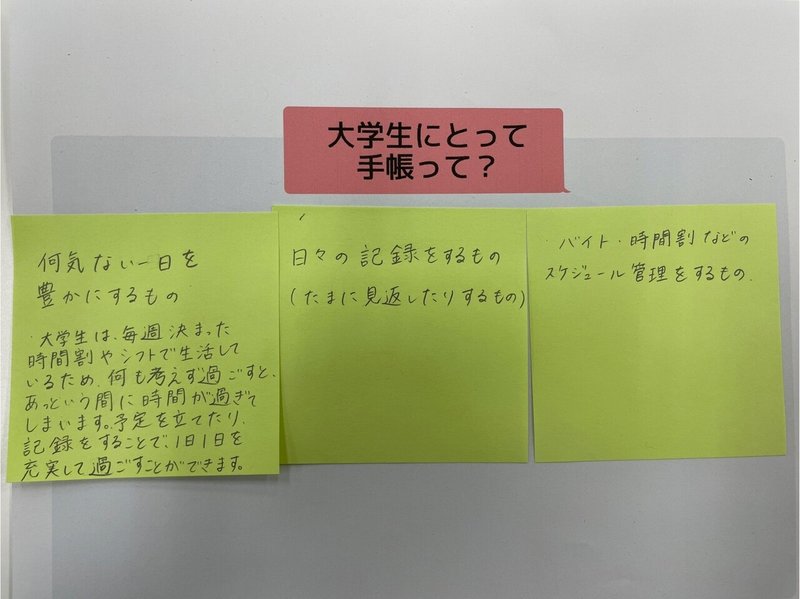 大学生にとって
手帳って？
何気ない一日を
豊かにするもの
・大学生は、毎週決まった
時間割やシフトで生活して
いるため、何も考えず過ごすと、
あっという間に時間が過ぎて
しまいます。予定を立てたり、
記録をすることで、1日1日を
充実して過ごすことができます。
日々の記録をするもの
(たまに見返したりするもの)
・バイト・時間割などの
スケジュール管理をするもの.